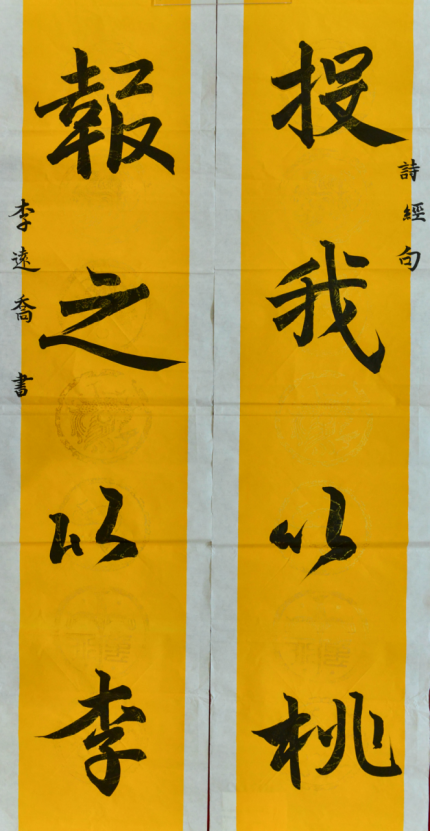 詩經句
投我以桃
報之以李
李遠喬書